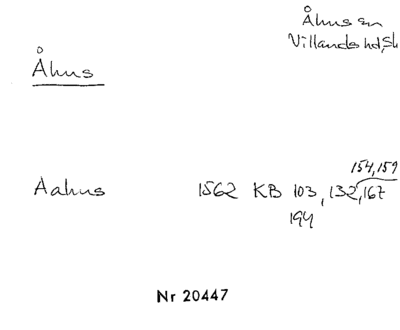 Åhus sn
Villands hd, Sk
Åhus
154, 159
Aahus 1562 KB 103, 132, 167
194
Nr 20447